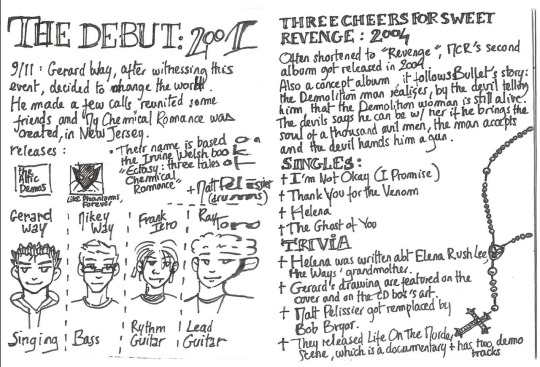 THE DEBUT: 2001
9/11: Gerard Way, after witnessing this
event, decided to change the world.
He made a few calls, reunited some
friends and My Chemical Romance was
created, in New Jersey.
releases:
• Their name is based on
the Irvine Welsh book
"Ecstasy: three tales of
Chemical
Romance"
The
Attic
Demos
Like Phantoms,
Forever
+ Matt Pelissier
(drums)
Gerard
Way
Mikey
Way
Frank
Iero
Ray
Toro
Singing
Bass
Rythm
Guitar
Lead
Guitar
THREE CHEERS FOR SWEET
REVENGE: 2004
Often shortened to "Revenge", MCR's second
album got released in 2004.
Also a concept album, it follows Bullet's story:
the Demolition man realises, by the devil telling
him, that the Demolition woman is still alive.
The devils says he can be w/ her if he brings the
soul of a thousand evil men, the man accepts
and the devil hands him a gun.
SINGLES:
† I'm Not Okay (I Promise)
† Thank You for the Venom
† Helena
† The Ghost of You
TRIVIA
† Helena was written abt Elena Rush Lee
the Ways' grandmother.
† Gerard's drawing are featured on the
cover and on the CD box's art.
† Matt Pelissier got remplaced by
Bob Bryar.
† They released Life On The Murder
Scene, which is a documentary + has two demo
tracks